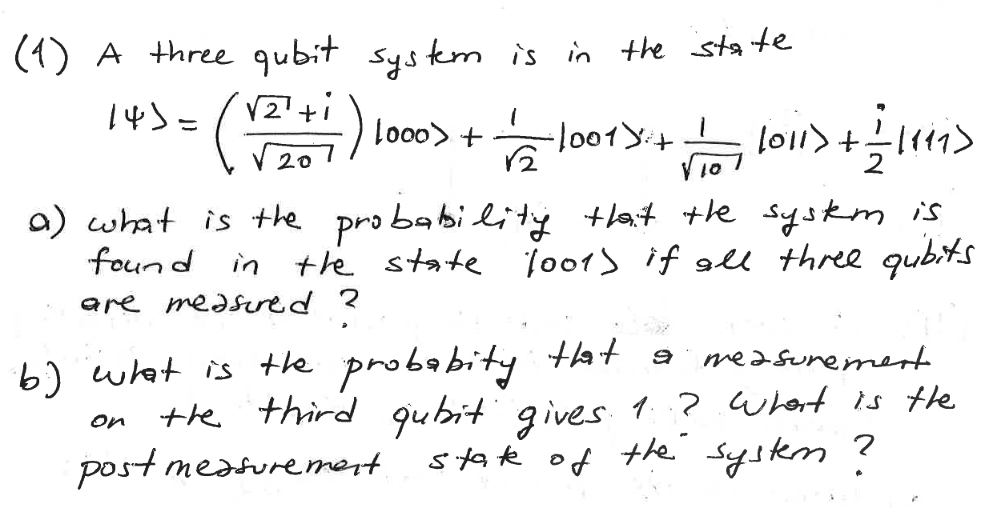 (1) A three qubit system is in the state
|ψ⟩ = ((√2 + i)/√20) |000⟩ + 1/√2 |001⟩ + 1/√10 |011⟩ + i/2 |111⟩
a) what is the probability that the system is
found in the state |001⟩ if all three qubits
are measured ?
b) what is the probabity that a measurement
on the third qubit gives 1 ? What is the
post measurement state of the system ?